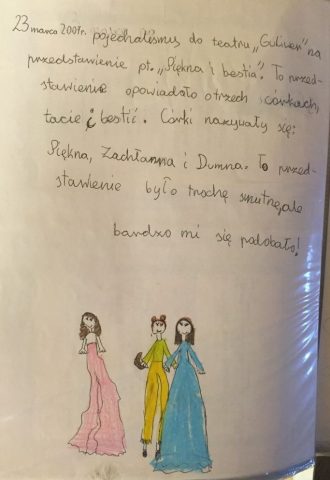 23 marca 2009r. pojechaliśmy do teatru „Guliwer" na
przedstawienie pt. „Piękna i bestia". To przed-
stawienie opowiadało o trzech córkach,
tacie i bestii. Córki nazywały się:
Piękna, Zachłanna i Dumna. To przed-
stawienie było trochę smutne, ale
bardzo mi się podobało!